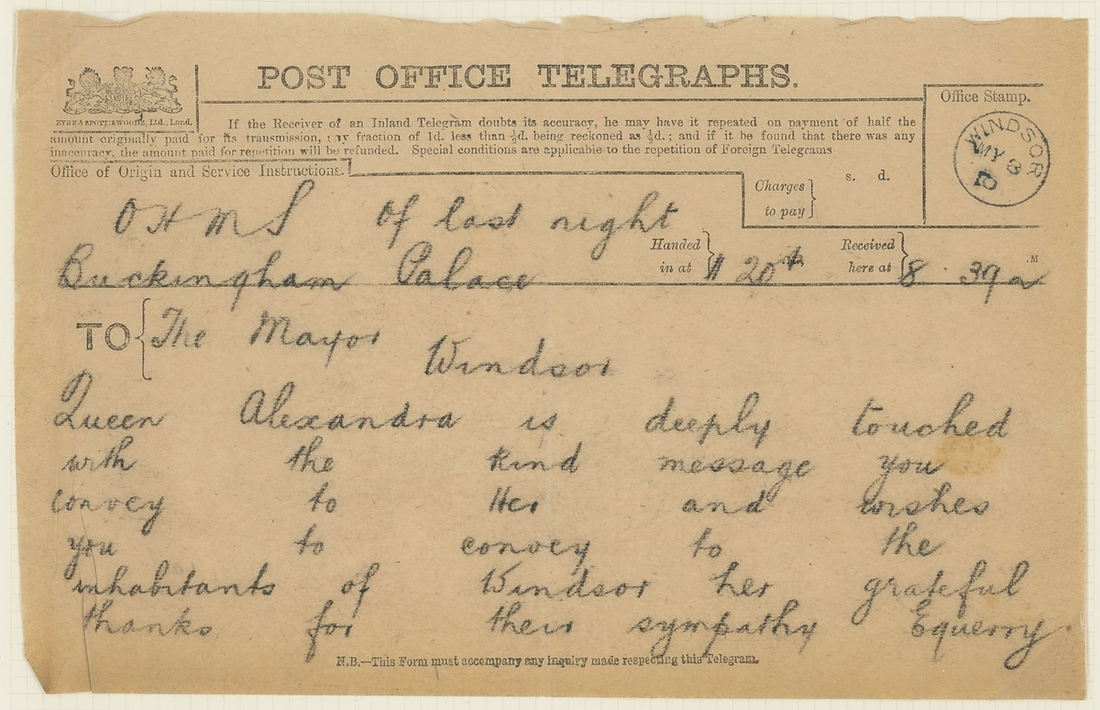 POST OFFICE TELEGRAPHS.
EYRE & SPOTTISWOODE, Ltd., Lond.
If the Receiver of an Inland Telegram doubts its accuracy, he may have it repeated on payment of half the
amount originally paid for its transmission, any fraction of 1d. less than ½d. being reckoned as ½d.; and if it be found that there was any
inaccuracy, the amount paid for repetition will be refunded. Special conditions are applicable to the repetition of Foreign Telegrams
Office of Origin and Service Instructions.
Office Stamp.
WINDSOR
MY 8
10
Charges to pay
s. d.
OHMS Of last night
Buckingham Palace
Handed in at 11 20
Received here at 8. 39 a M
TO The Mayor
Windsor
Queen Alexandra is deeply touched
with the kind message you
convey to Her and wishes
you to convey to the
inhabitants of Windsor her grateful
thanks for their sympathy Equerry
N.B.—This Form must accompany any inquiry made respecting this Telegram.